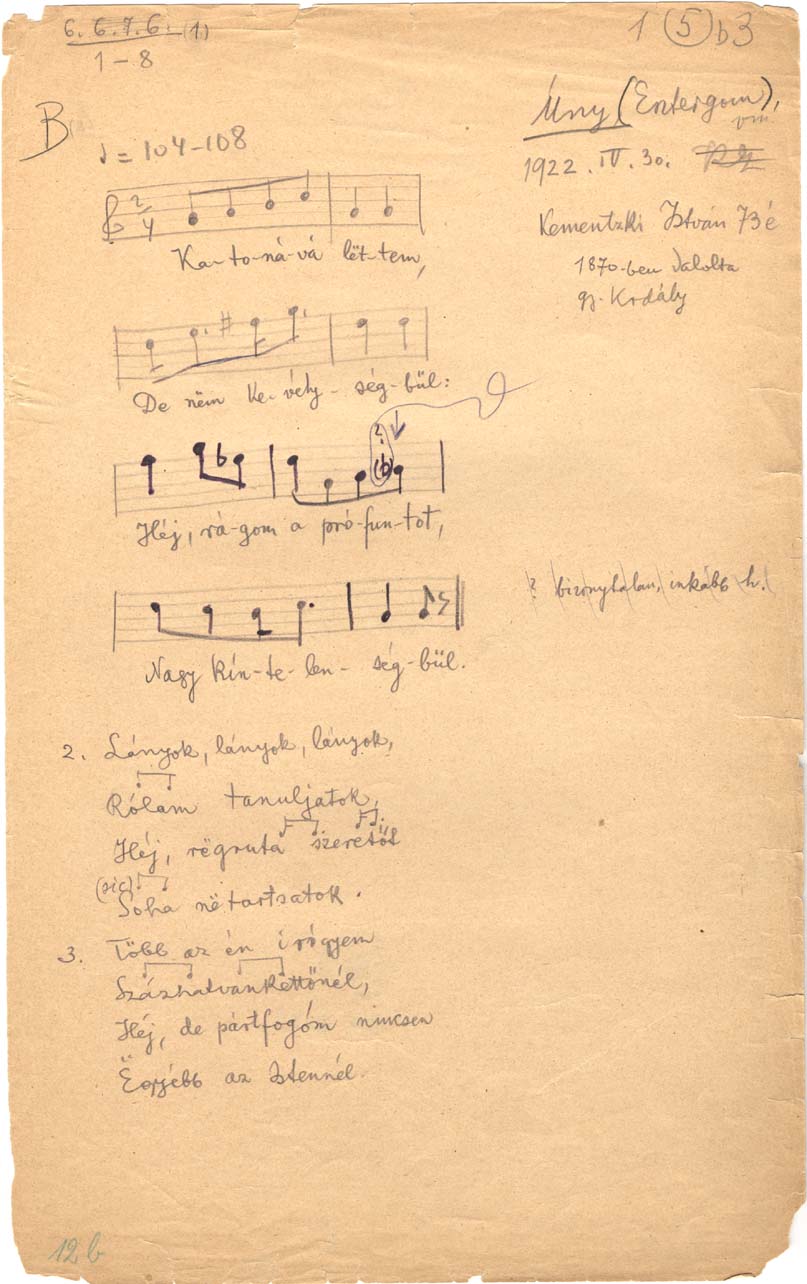 6. 6. 7. 6. (1)
1 – 8
1 (5) b3
B
Úny (Esztergom),
vm.
♩ = 104–108
1922. IV. 30.
2/4
Ka-to-ná-vá lët-tem,
Kementzki István 73 é
1870-ben dalolta
gy. Kodály
De nëm ke-vély-ség-bül:
?
(b)
Héj, rá-gom a pró-fun-tot,
? bizonytalan, inkább h.
Nagy kín-te-len-ség-bül.
2. Lányok, lányok, lányok,
Rólam tanuljatok,
Héj, rëgruta szeretőt
(sic)
Soha në tartsatok.
3. Több az én irígyem
Százhatvankettőnél,
Héj, de pártfogóm nincsen
Ëgyébb az Istennél.
12 b